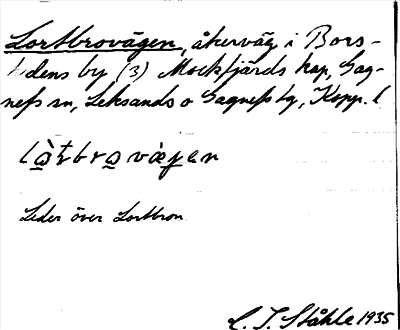 Lortbrovägen, åkerväg i Bors-
dens by (3) Mockfjärds kap, Gag-
nefs sn, Leksands o Gagnefs tg, Kopp. l
Leder över Lortbron
C. I. Ståhle 1935